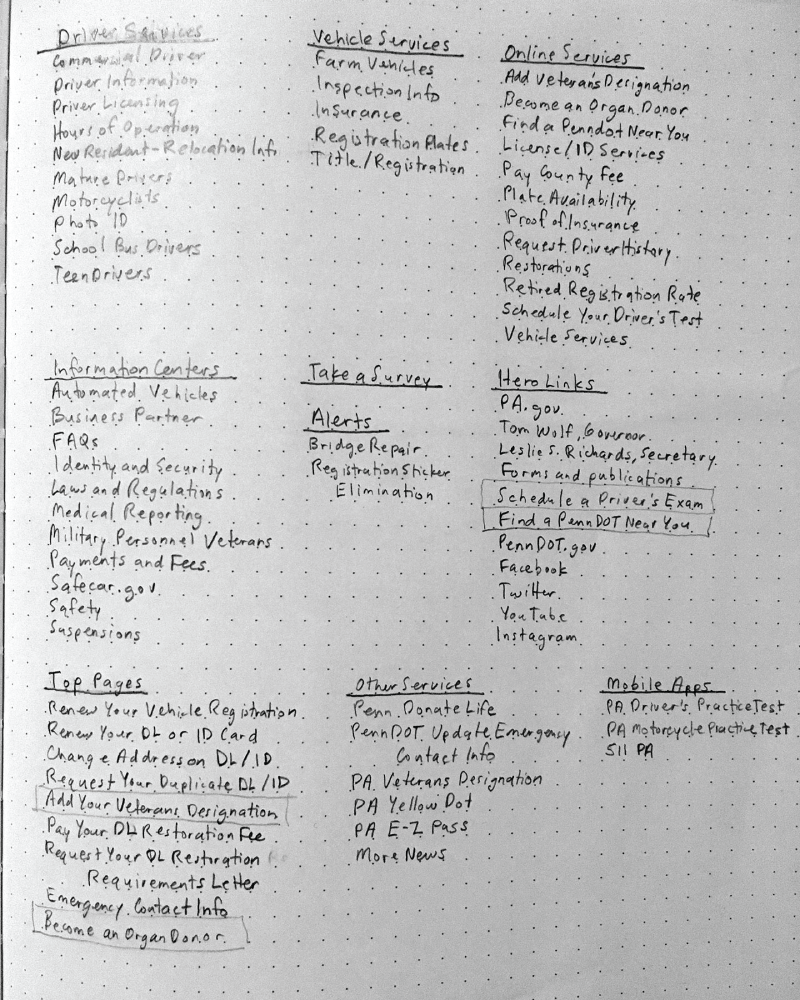 Driver Services
Commercial Driver
Driver Information
Driver Licensing
Hours of Operation
New Resident-Relocation Info
Mature Drivers
Motorcyclists
Photo ID
School Bus Drivers
Teen Drivers
Vehicle Services
Farm Vehicles
Inspection Info
Insurance
Registration Plates
Title/Registration
Online Services
Add Veteran's Designation
Become an Organ Donor
Find a Penndot Near You
License/ID Services
Pay County Fee
Plate Availability
Proof of Insurance
Request Driver History
Restorations
Retired Registration Rate
Schedule Your Driver's Test
Vehicle Services
Information Centers
Automated Vehicles
Business Partner
FAQs
Identity and Security
Laws and Regulations
Medical Reporting
Military Personnel Veterans
Payments and Fees
Safecar.gov
Safety
Suspensions
Take a Survey
Alerts
Bridge Repair
Registration Sticker
Elimination
Hero Links
PA.gov
Tom Wolf, Governor
Leslie S. Richards, Secretary
Forms and publications
Schedule a Driver's Exam
Find a PennDOT Near You
PennDOT.gov
Facebook
Twitter
YouTube
Instagram
Top Pages
Renew Your Vehicle Registration
Renew Your DL or ID Card
Change Address on DL/ID
Request Your Duplicate DL/ID
Add Your Veterans Designation
Pay Your DL Restoration Fee
Request Your DL Restoration
Requirements Letter
Emergency Contact Info
Become an Organ Donor
Other Services
Penn Donate Life
PennDOT Update Emergency
Contact Info
PA Veterans Designation
PA Yellow Dot
PA E-Z Pass
More News
Mobile Apps
PA Driver's Practice Test
PA Motorcycle Practice Test
511 PA